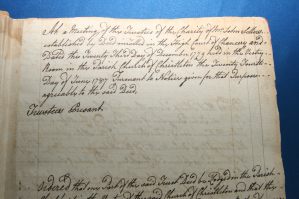 At a Meeting of the Trustees of the Charity of Mr John Sellers
established by Deed enrolled in the High Court of Chancery and
Dated the Twenty third Day of December 1779 held in the Vestry
Room in the Parish Church of Christleton the Twenty Fourth
Day of June 1787 Pursuant to Notice given for that purpose
agreeable to the said Deed,
Trustees Present.
Ordered that one Part of the said Trust Deed be Lodged in the Parish
Church of Christleton and that the